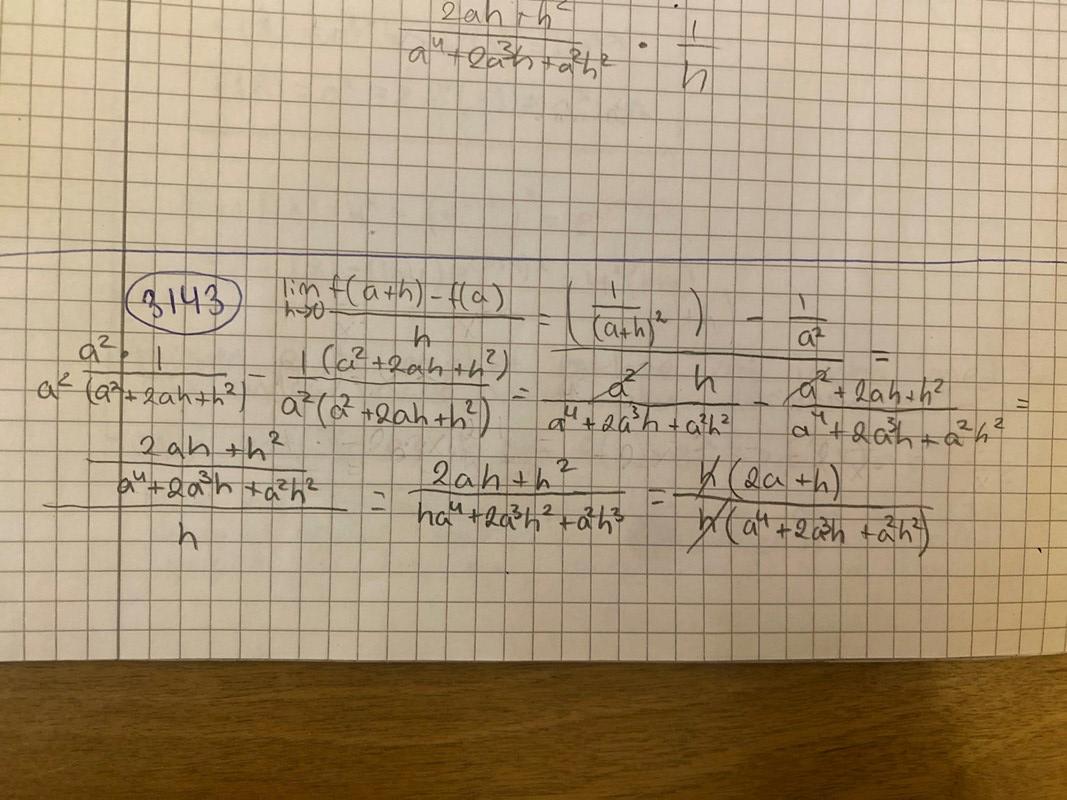 2ah + h²
a⁴ + 2a³h + a²h² · 1/h
3143 lim h→0 f(a+h) - f(a) / h = (1/(a+h)²) - 1/a² / h =
a² · 1 / a² (a² + 2ah + h²) - 1(a² + 2ah + h²) / a²(a² + 2ah + h²) = a² / a⁴ + 2a³h + a²h² - a² + 2ah + h² / a⁴ + 2a³h + a²h² =
2ah + h² / a⁴ + 2a³h + a²h² / h = 2ah + h² / ha⁴ + 2a³h² + a²h³ = h(2a + h) / h(a⁴ + 2a³h + a²h²)